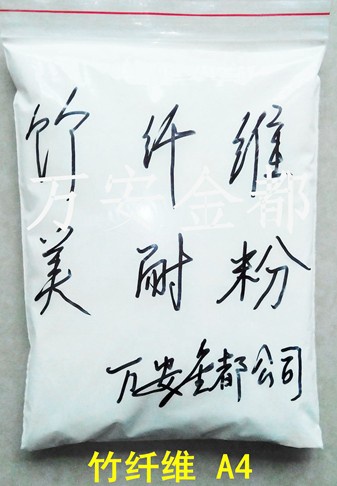 竹纤维
万安金都
美耐粉
万安金都公司
竹纤维 A4